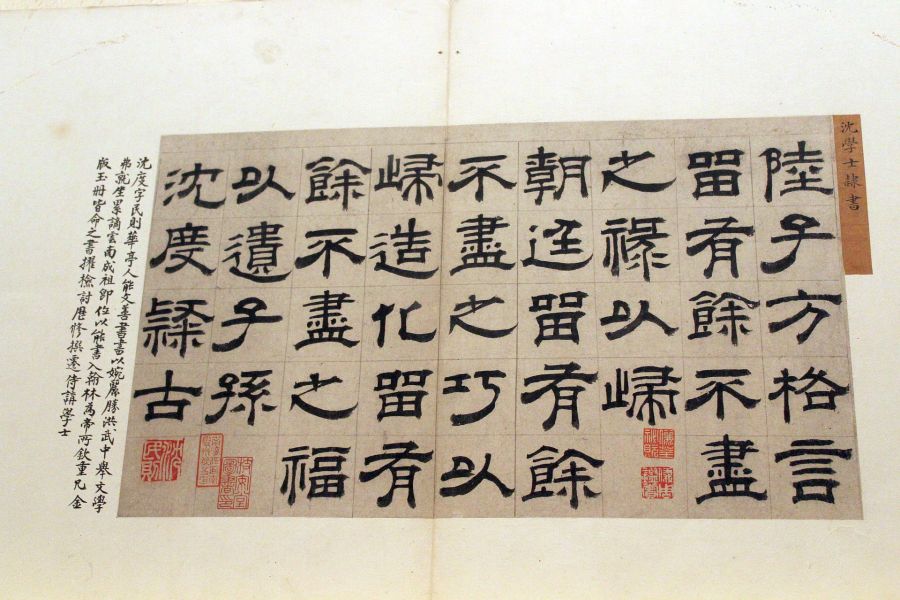 沈學士隸書
陸子方格言
留有餘不盡
之祿以歸
朝廷留有餘
不盡之巧以
歸造化留有
餘不盡之福
以遺子孫
沈度隸古
沈民則
沈度字民則華亭人能文善書書以婉麗勝洪武中舉文學
弗就坐累謫雲南成祖即位以能書入翰林為帝所欽重凡金
版玉冊皆命之書擢檢討歷修撰遷侍講學士